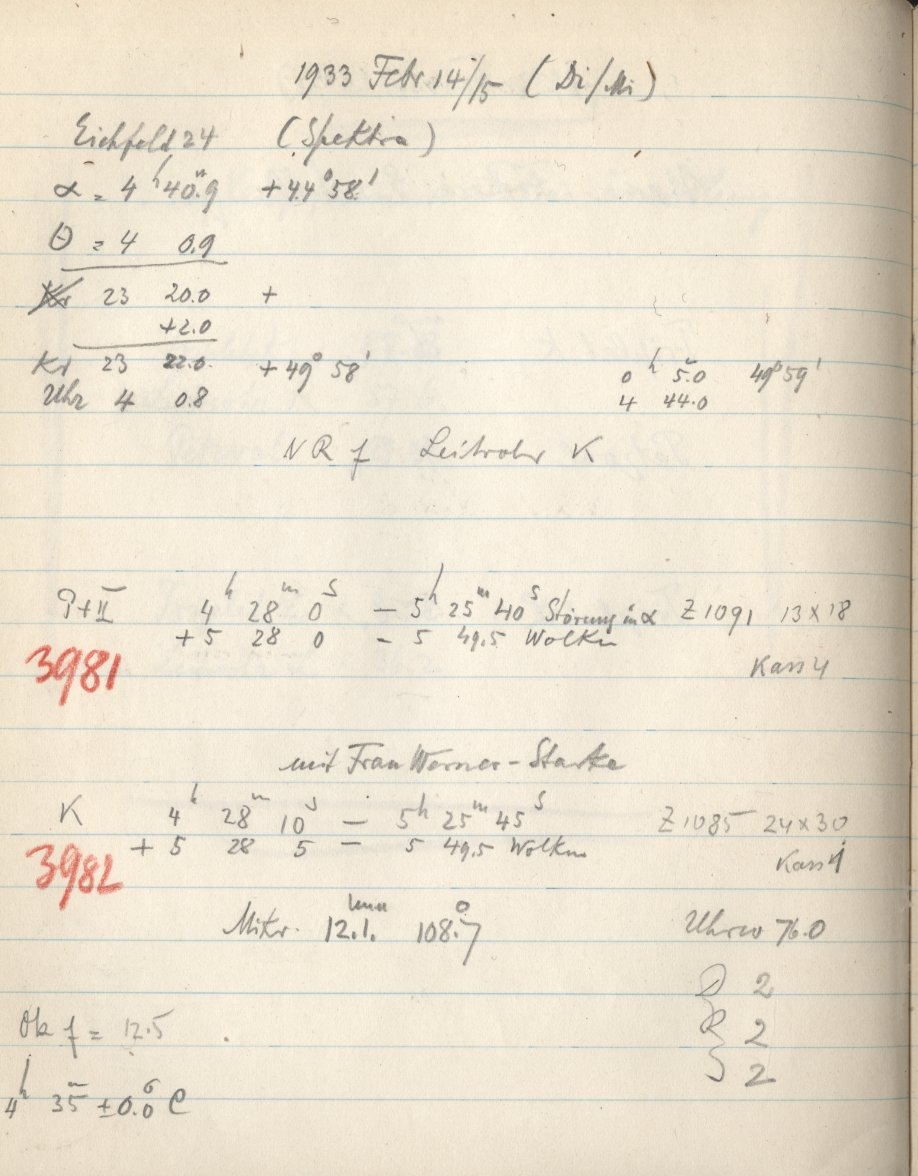 1933 Febr 14/15 (Di/Mi)
Eichfeld 24 (Spektra)
α = 4h 40m.9 +44° 58'
θ = 4 0.9
Kr 23 20.0 +
+2.0
Kr 23 22.0 +49° 58' 0h 5m.0 49° 59'
Uhr 4 0.8 4 44.0
NR f Leitrohr K
P+II 4h 28m 0s — 5h 25m 40s Störung in α Z1091 13x18
+ 5 28 0 – 5 49.5 Wolken
3981 Kass 4
mit Frau Werner-Starke
K 4h 28m 10s — 5h 25m 45s Z1085 24x30
+ 5 28 5 – 5 49.5 Wolken
3982 Kass 1
Mikr. 12.1. mm 108°.7 Uhrw 76.0
D 2
R 2
S 2
Ok f = 12.5
4h 35m ±0.°0 C